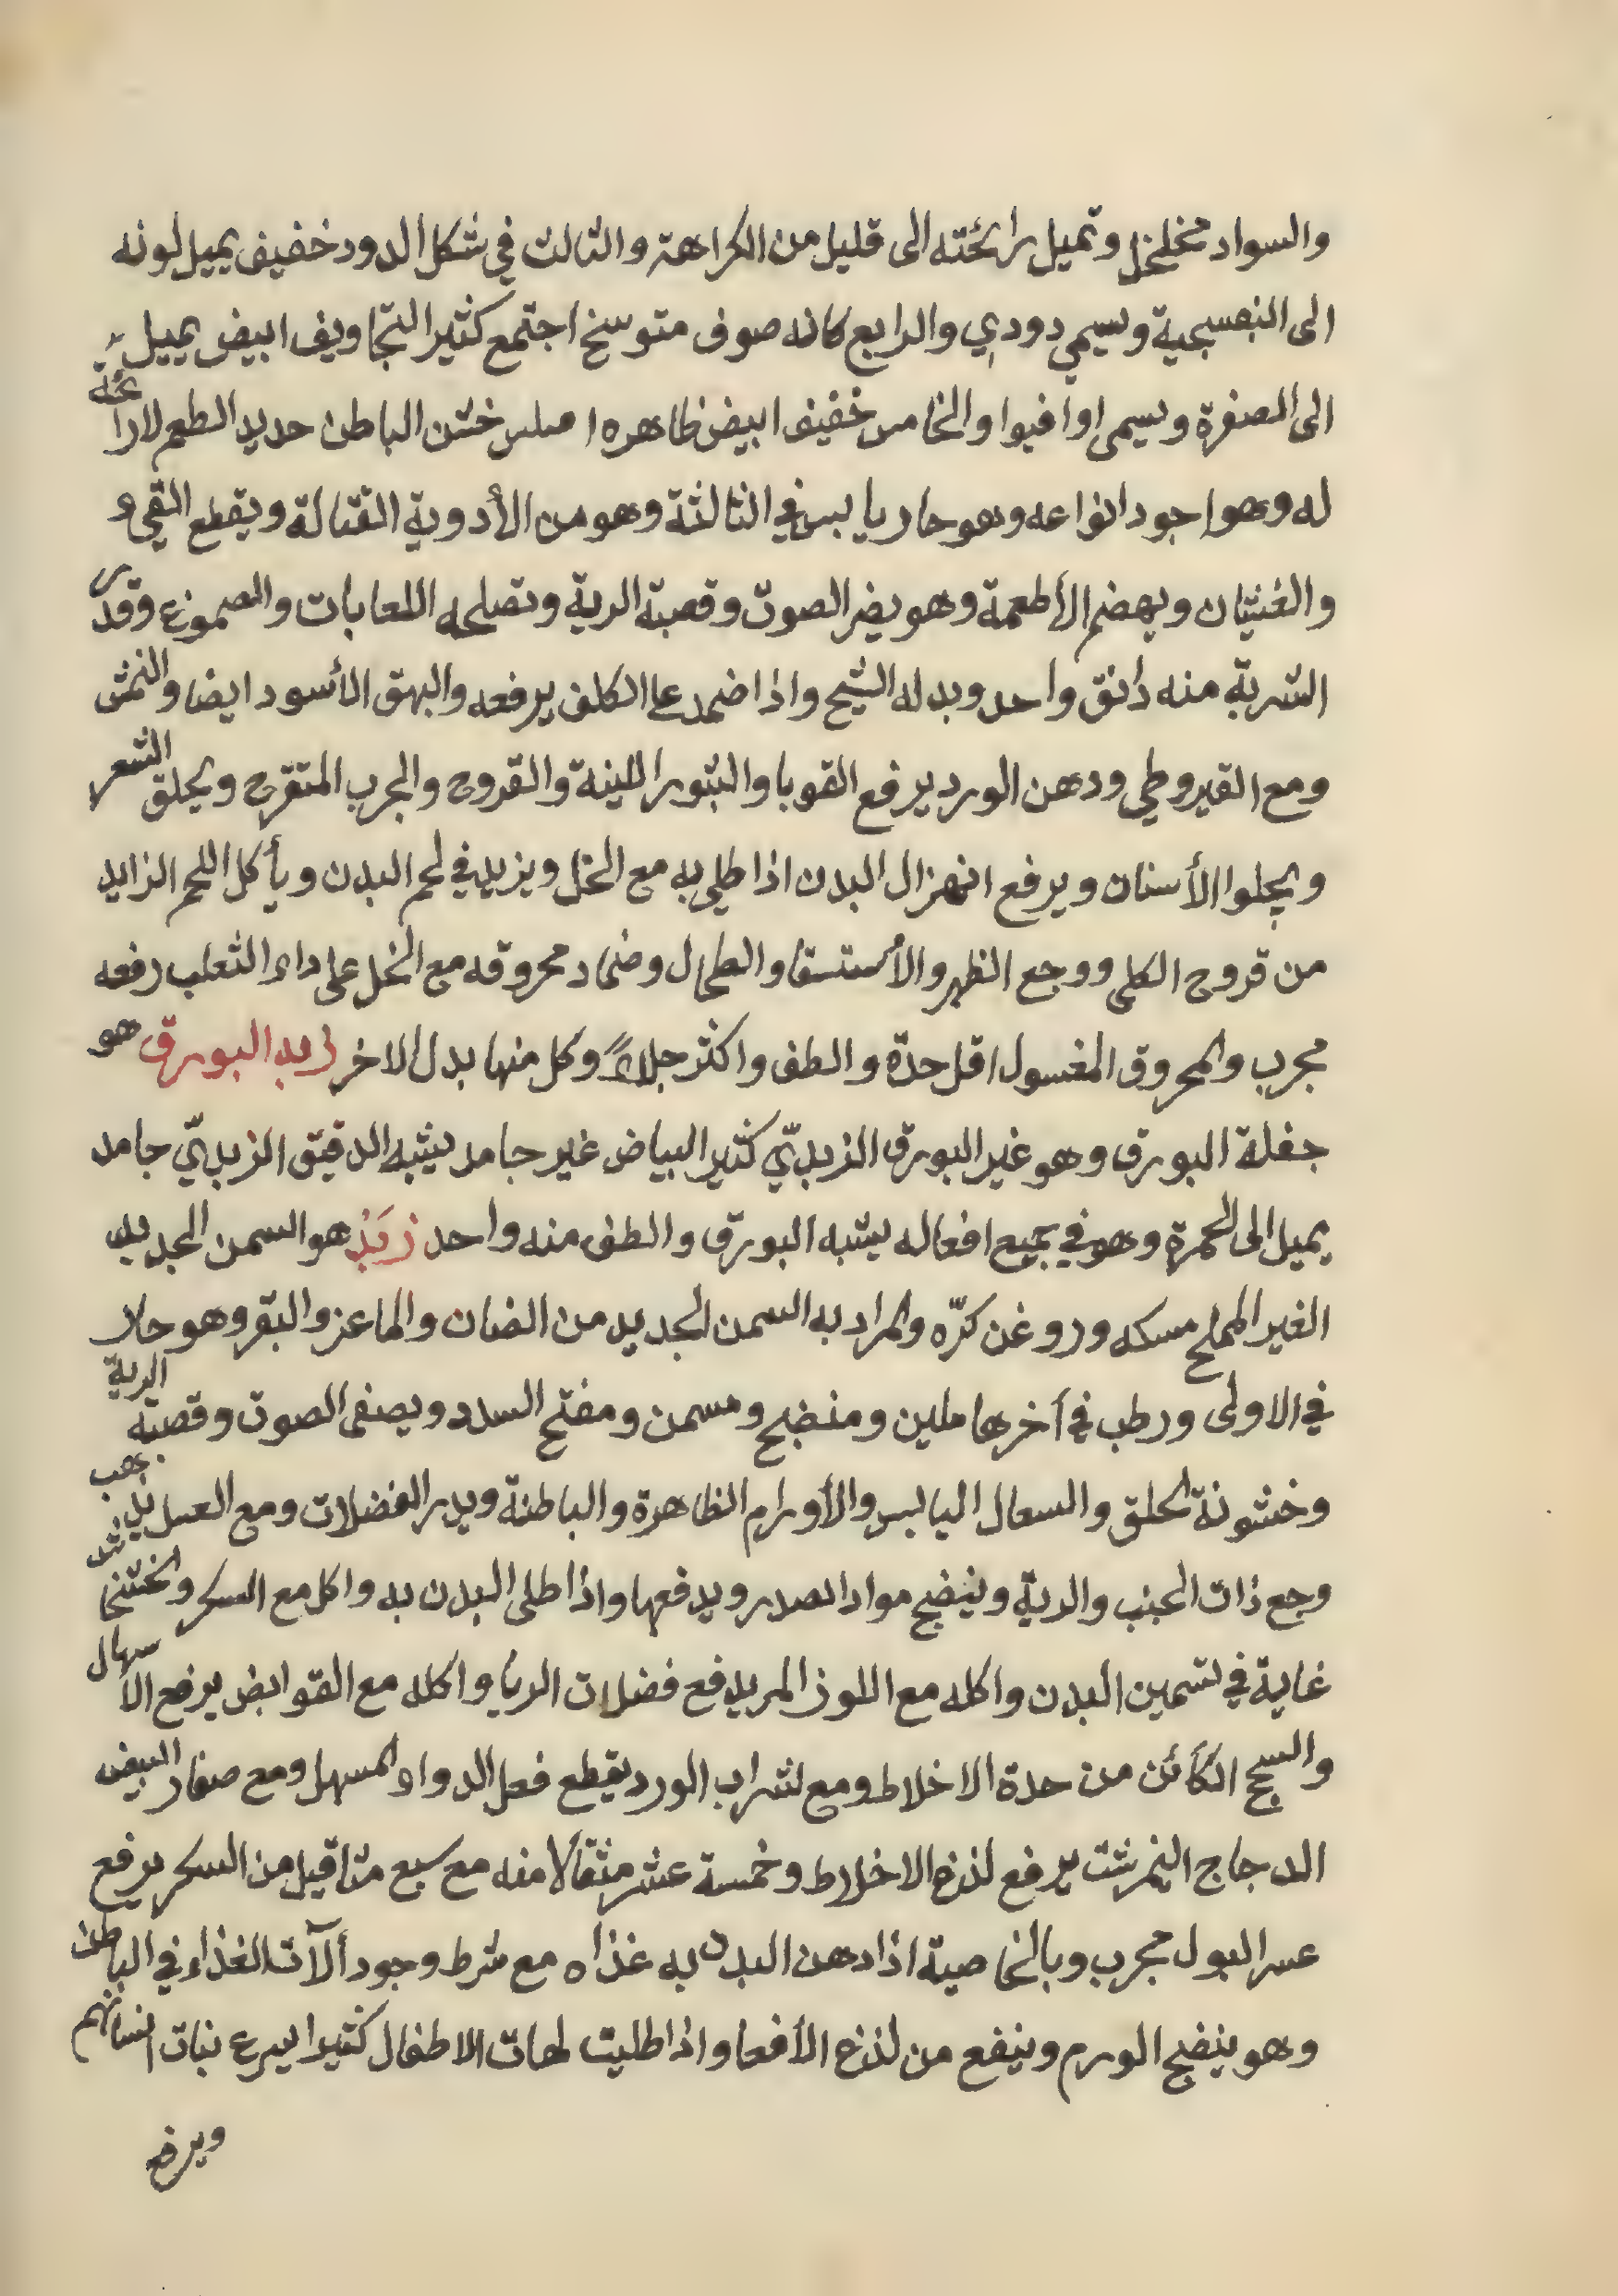 والسواد متخلخل وتميل رائحته الى قليل من الكراهة والثالث في شكل الدود خفيف يميل لونه
الى البنفسجية ويسمى دودي والرابع كانه صوف متوسخ اجتمع كثير التجاويف ابيض يميل
الى الصفرة ويسمى اوافيوا والخامس خفيف ابيض ظاهره املس خشن الباطن حديد الطعم لا رائحة
له وهو اجود انواعه وهو حار يابس في الثالثة وهو من الأدوية القتالة ويقطع القيء
والغثيان ويهضم الأطعمة وهو يضر الصوت وقصبة الرية وتصلحه اللعابات والصموغ وقدر
الشربة منه دانق واحد وبدله الشيح واذا ضمد على الكلف يرفعه والبهق الأسود ايضا والنمش
ومع القيروطي ودهن الورد يرفع القوبا والبثور اللينة والقروح والجرب المتقرح ويحلق الشعر
ويجلوا الأسنان ويرفع انهزال البدن اذا طلي به مع الخل ويزيد في لحم البدن ويأكل اللحم الزايد
من قروح الكلى ووجع الظهر والأستسقا والطحال وضماد محروقه مع الخل على داء الثعلب رفعه
مجرب والمحروق المغسول اقل حدّة والطف واكثر جلاءً وكل منها بدل الاخر زبد البورق هو
جفلة البورق وهو غير البورق الزبديّ كثير البياض غير جامد يشبه الدقيق الزبديّ جامد
يميل الى الحمرة وهو في جميع افعاله يشبه البورق والطف منه واحد زبَدْ هو السمن الجديد
الغير المملح مسكه وروغن كرّه والمراد به السمن الجديد من الضان والماعز والبقر وهو حار
في الاولى ورطب في آخرها ملين ومنضج ومسمن ومفتح السدد ويصفى الصوت وقصبة الرية
وخشونة الحلق والسعال اليابس والأورام الظاهرة والباطنة ويدر الفضلات ومع العسل يذهب
وجع ذات الجنب والرية وينضج مواد الصدر ويدفعها واذا طلى البدن به واكل مع السكر والخشخاش
غاية في تسمين البدن واكله مع اللوز المر يدفع فضلات الريا واكله مع القوابض يرفع الاسهال
والسحج الكائن من حدة الاخلاط ومع شراب الورد يقطع فعل الدواء المسهل ومع صفار البيض
الدجاج النمرشت يرفع لذع الاخلاط وخمسة عشر مثقالا منه مع سبع مثاقيل من السكر يرفع
عسر البول مجرب وبالخاصية اذا دهن البدن به غذاه مع شرط وجود ألآت الغذاء في الباطن
وهو ينضج الورم وينفع من لذع الأفعا واذا طليت لهات الاطفال كثيرا يسرع نبات اسنانهم
ويرفع